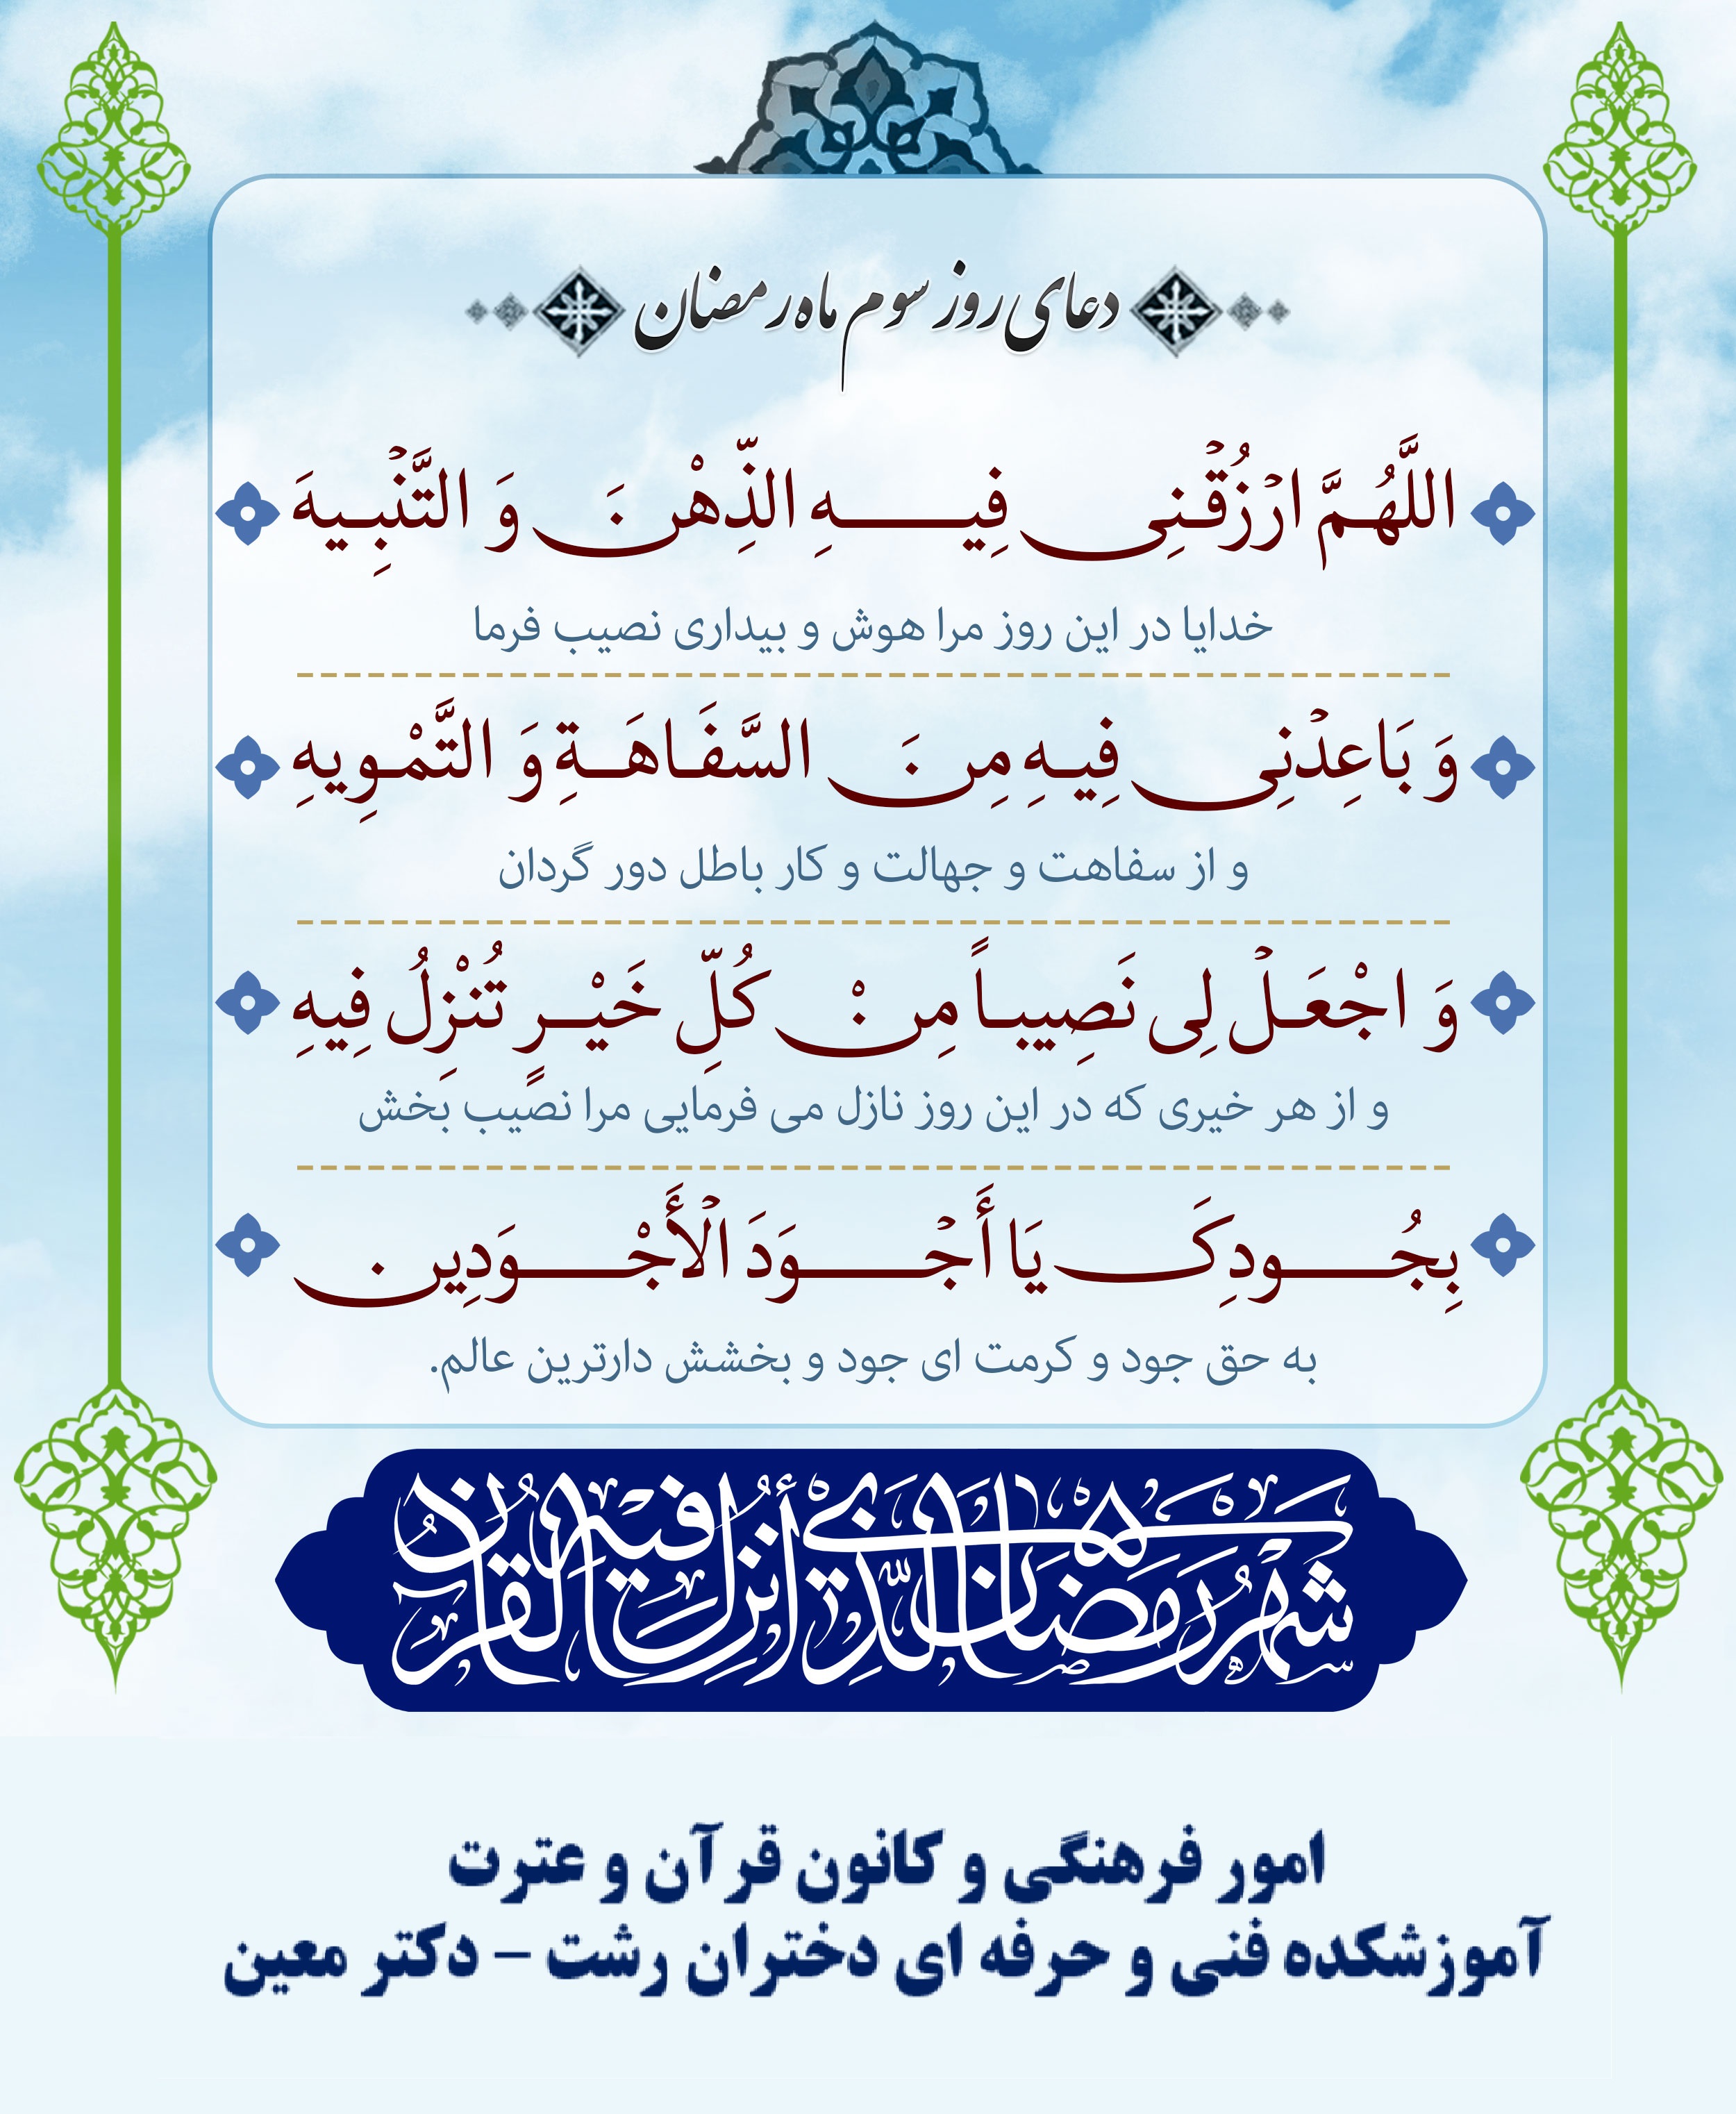 دعای روز سوم ماه رمضان
اللَّهُمَّ ارْزُقْنِی فِیهِ الذِّهْنَ وَ التَّنْبِیهَ
خدایا در این روز مرا هوش و بیداری نصیب فرما
وَ بَاعِدْنِی فِیهِ مِنَ السَّفَاهَةِ وَ التَّمْوِیهِ
و از سفاهت و جهالت و کار باطل دور گردان
وَ اجْعَلْ لِی نَصِیباً مِنْ کُلِّ خَیْرٍ تُنْزِلُ فِیهِ
و از هر خیری که در این روز نازل می فرمایی مرا نصیب بخش
بِجُودِکَ یَا أَجْوَدَ الْأَجْوَدِین
به حق جود و کرمت ای جود و بخشش دارترین عالم.
شهر رمضان الذی أنزل فیه القرآن
امور فرهنگی و کانون قرآن و عترت
آموزشکده فنی و حرفه ای دختران رشت – دکتر معین